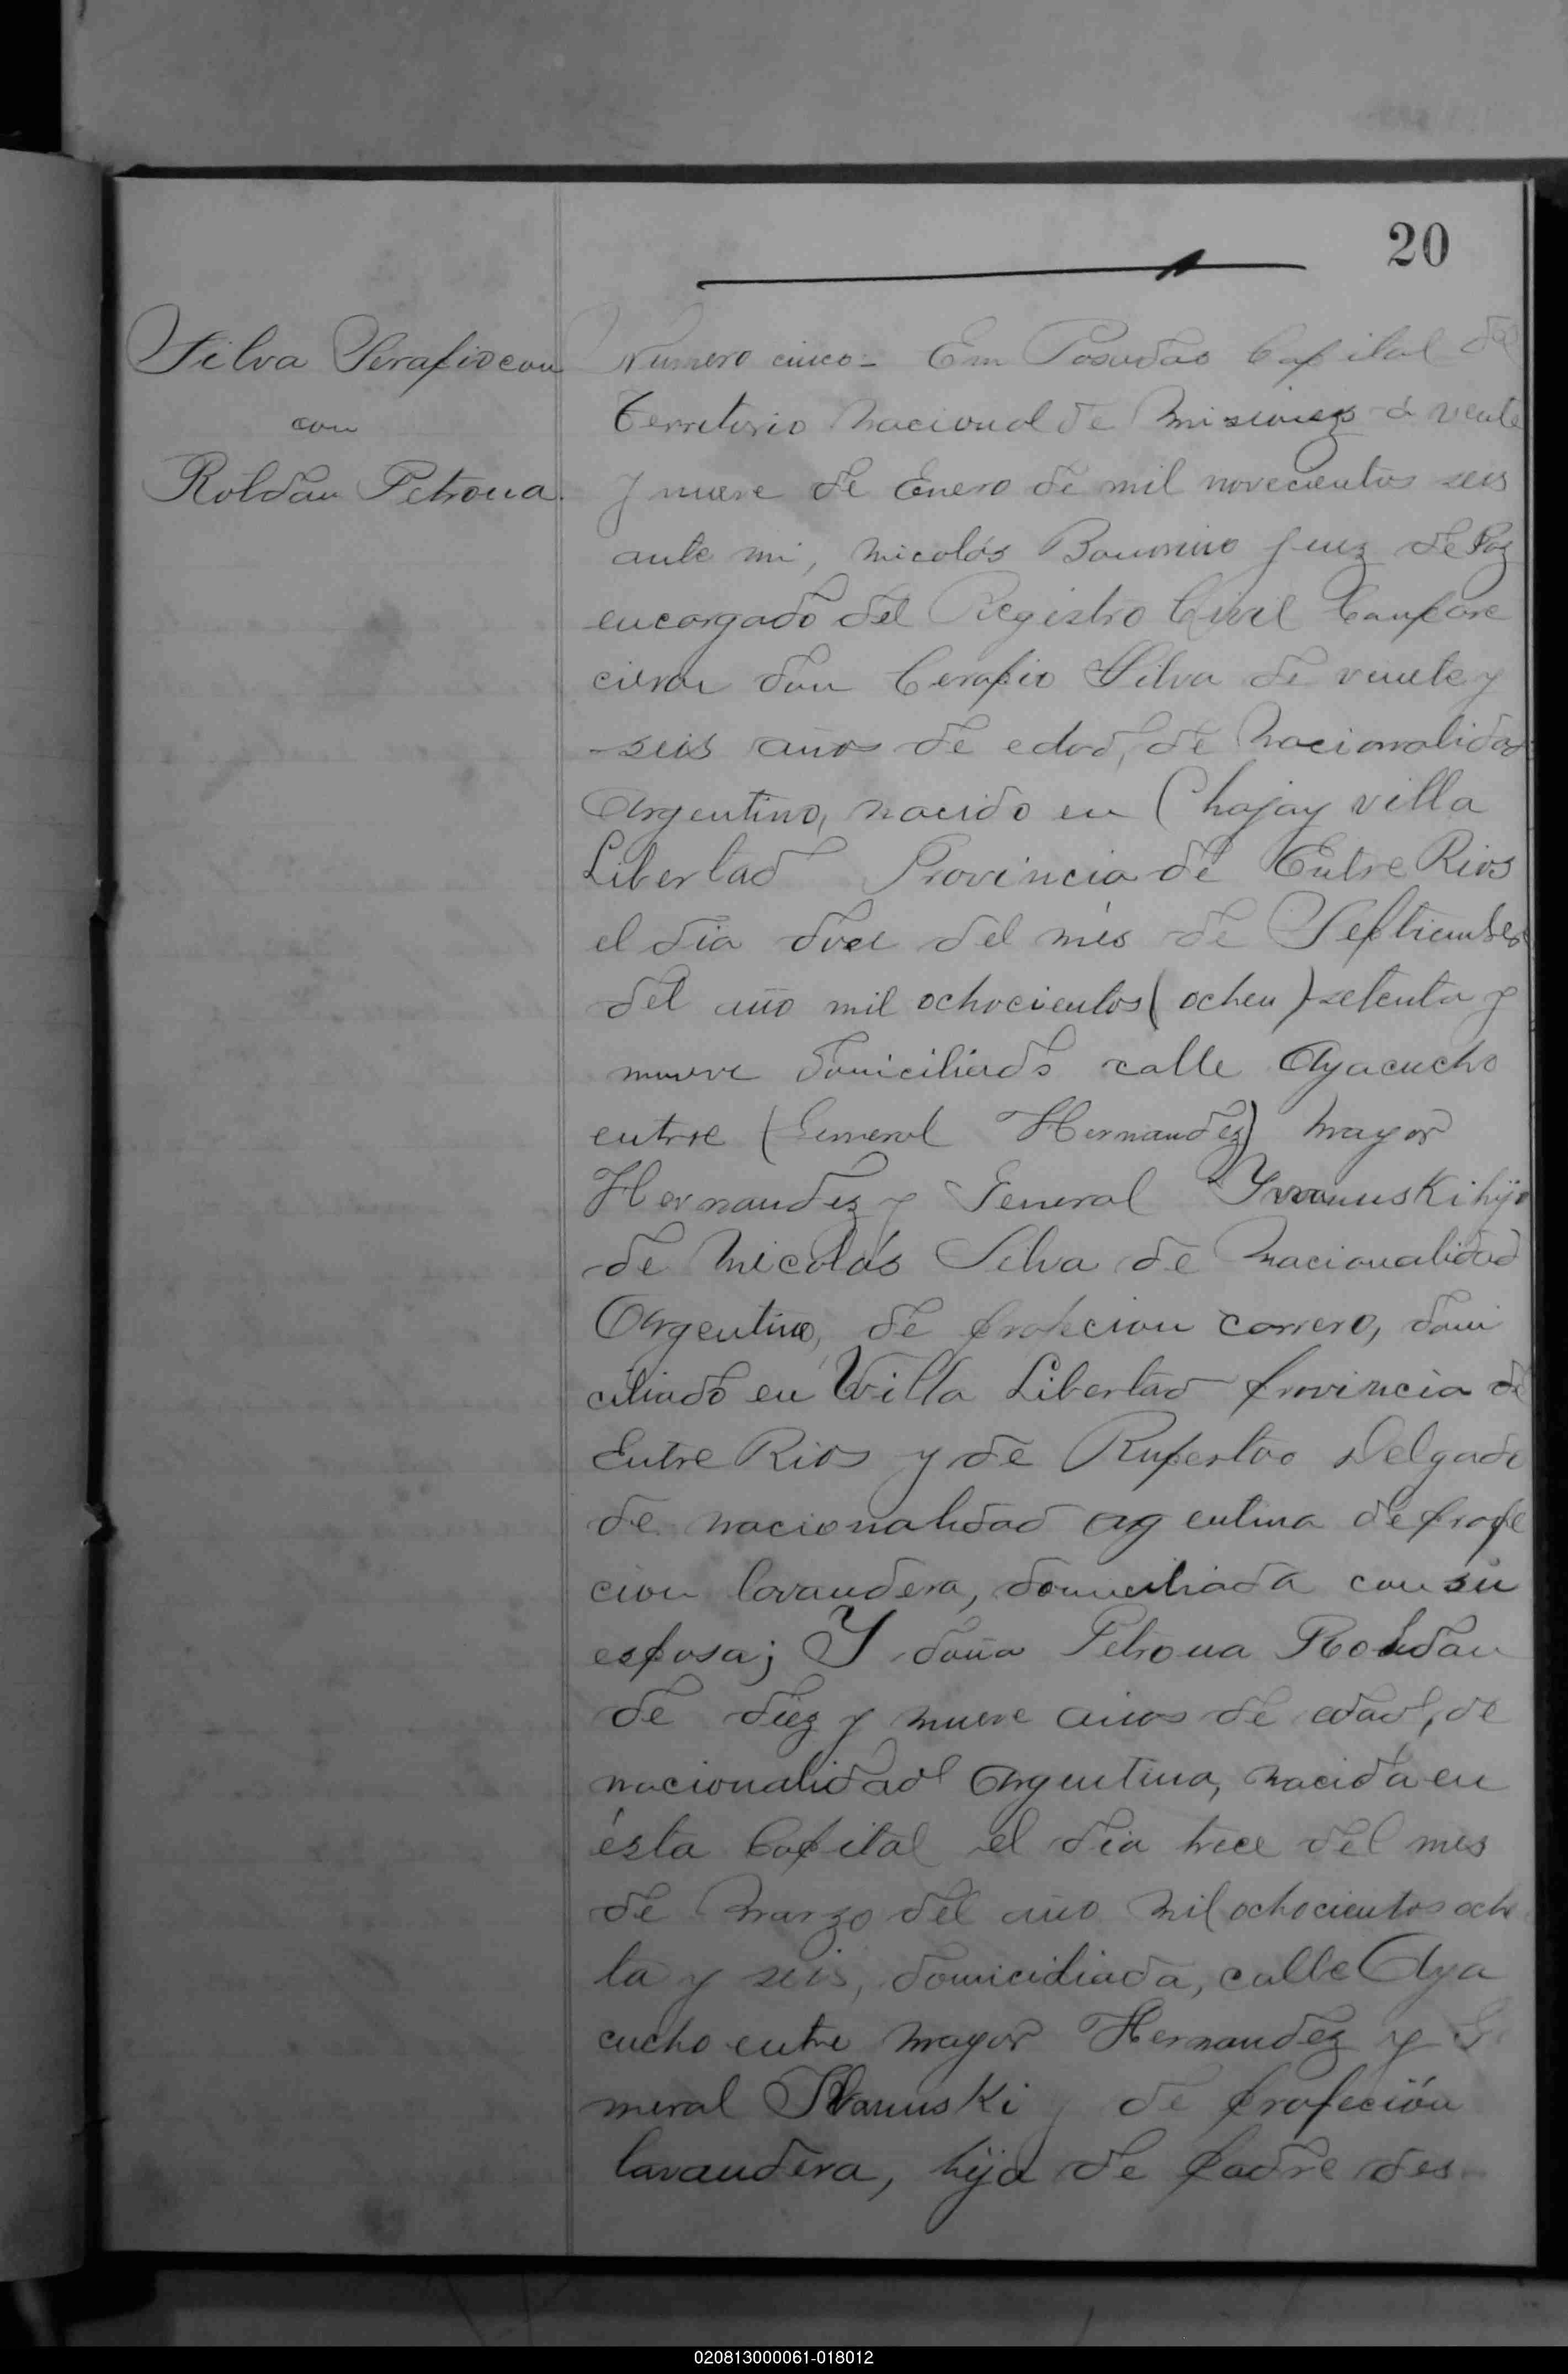 20
Silva Serafio con
con
Roldan Petrona.
Numero cinco = Em Posadas Capital de
Territorio Nacional de Misiones á veinte
y nueve de Enero de mil novecientos seis
ante mi, Nicolás Juez de Paz
encargado del Registro Civil Compare
cieron don Cerafio Silva de veinte y
seis años de edad, de Nacionalidad
Argentino, nacido en Chajay villa
Libertad Provincia de Entre Rios
el dia doce del més de Septiembre
del año mil ochocientos (ochen) setenta y
nueve domiciliado calle Ayacucho
entre (General Hernandez) Mayor
Hernandez y General hijo
de Nicolás Silva de Nacionalidad
Argentino, de profecion carrero, domi
ciliado en Villa Libertad provincia de
Entre Rios y de Delgado
de nacionalidad argentina de profe
cion lavandera, domiciliada con su
esposa; Y doña Petrona Roldan
de diez y nueve años de edad, de
nacionalidad Argentina, nacida en
ésta Capital el dia trece del mes
de Marzo del año mil ochocientos oche
ta y seis, domicidiada, calle Aya
cucho entre Mayor Hernandez y Ge
neral y de profeción
lavandera, hija de padre des
020813000061-018012